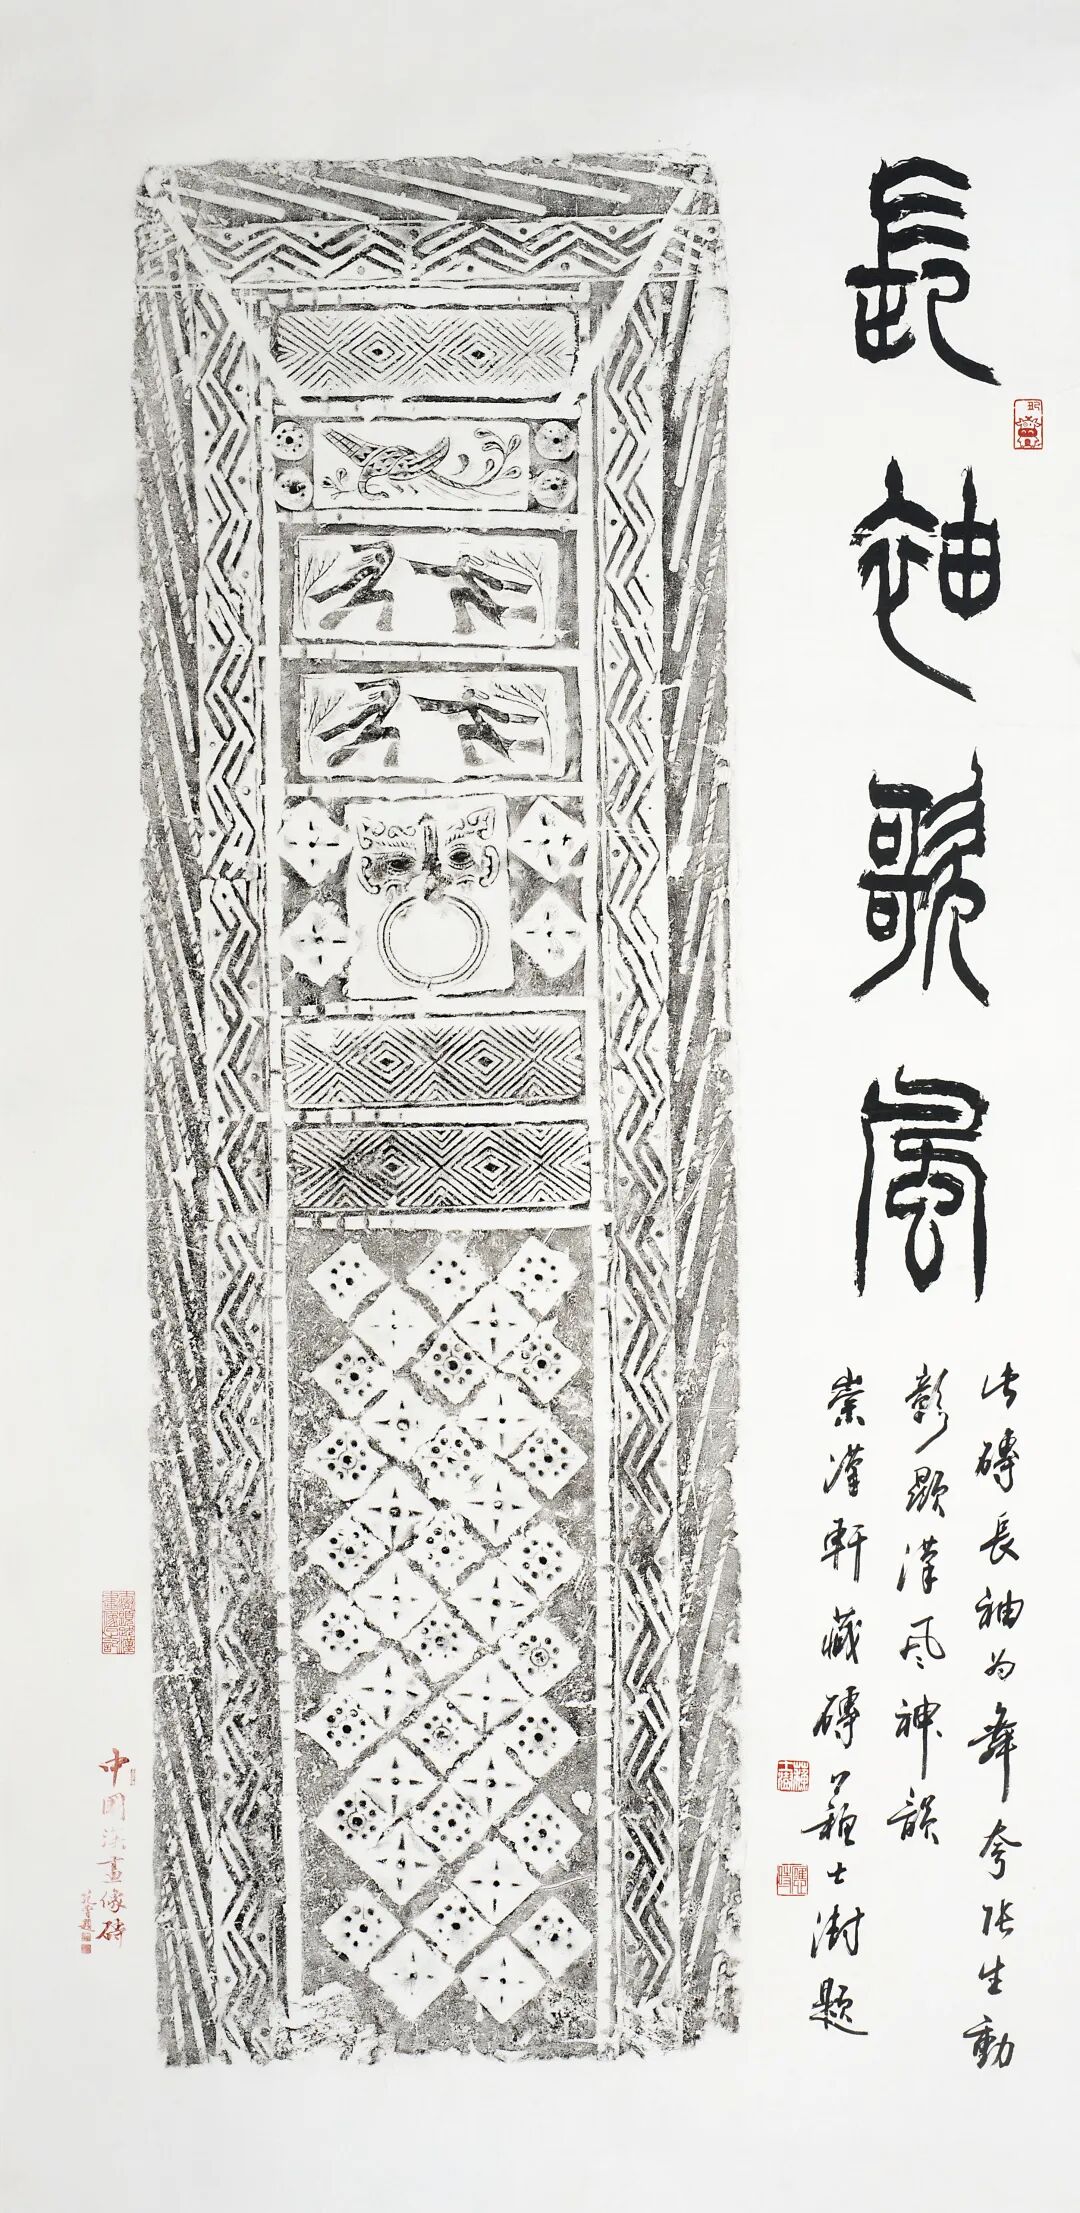 長袖歌風
此磚長袖为舞夸張生動
彰顯漢风神韻
崇漢軒藏磚 蘇士澍題
中國漢畫像磚
范曾題